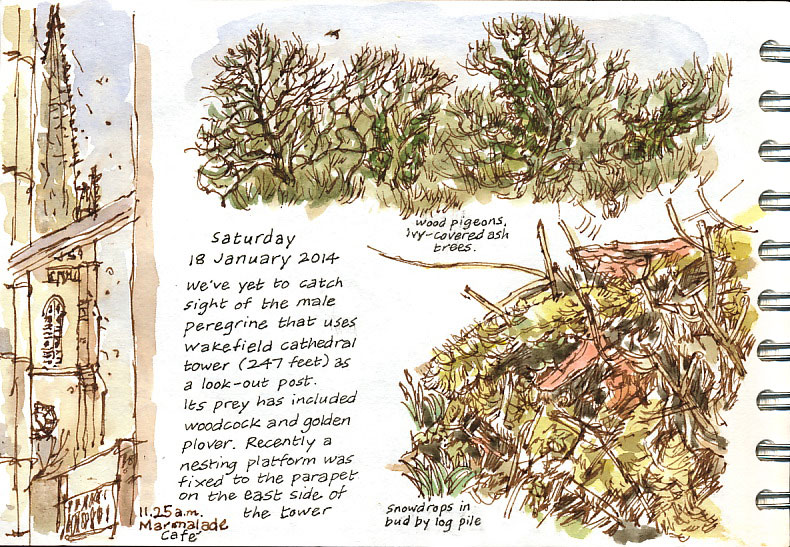 wood pigeons,
ivy-covered ash
trees.
Saturday
18 January 2014
We've yet to catch
sight of the male
peregrine that uses
Wakefield cathedral
tower (247 feet) as
a look-out post.
Its prey has included
woodcock and golden
plover. Recently a
nesting platform was
fixed to the parapet
on the east side of
the tower
11.25 a.m.
Marmalade
Café
snowdrops in
bud by log pile